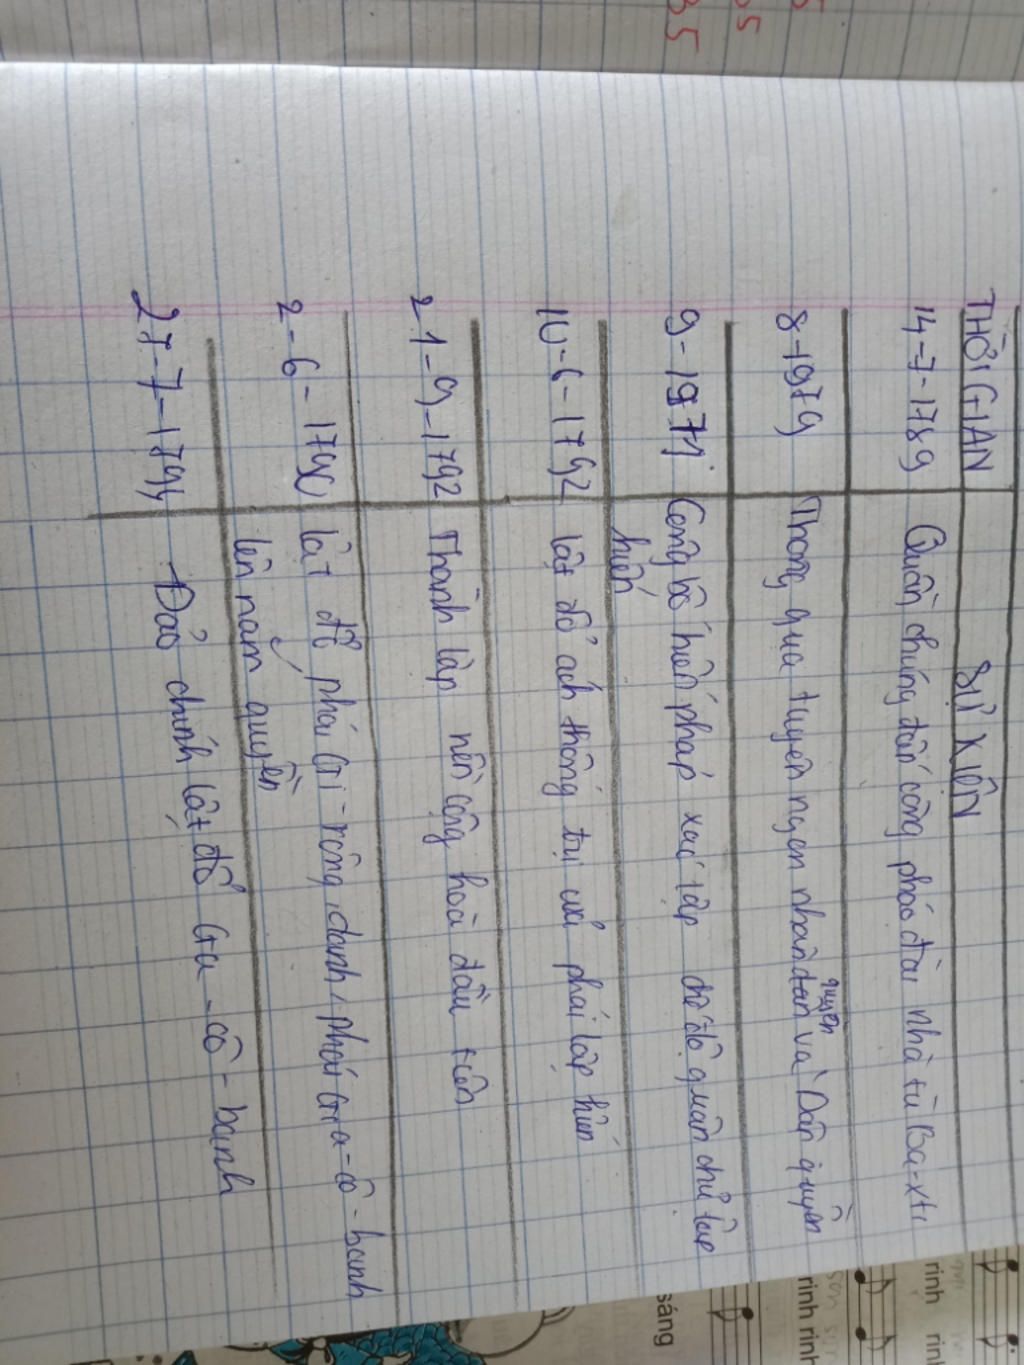 THỜI GIAN SỰ KIỆN
14-7-1789 Quần chúng đấn công pháo đài nhà tù Ba-xti
8-1979 Thong qua tuyên ngon nhân quyền và Dân quyền
9-1971 Công bố hiến pháp xác lập chế độ quân chủ lập
hiến
10-6-1792 lật đổ ách thống trị của phái lập hiến
21-9-1792 Thành lập nền cộng hoà đầu tiên
2-6-179 lật đổ phái Gi-rông, đanh, phái Gia-cô-banh
lên nắm quyền
27-7-1794 Đảo chính lật đổ Gia-cô-banh
35
sáng
rinh rinh
rinh